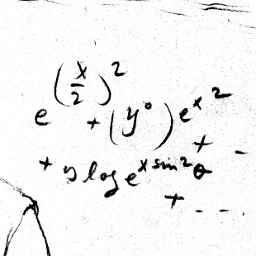 e^{(x/2)^2} + (y°) e^{x^2} + -
+ y log e^{x sin^2 θ}
+ - - -